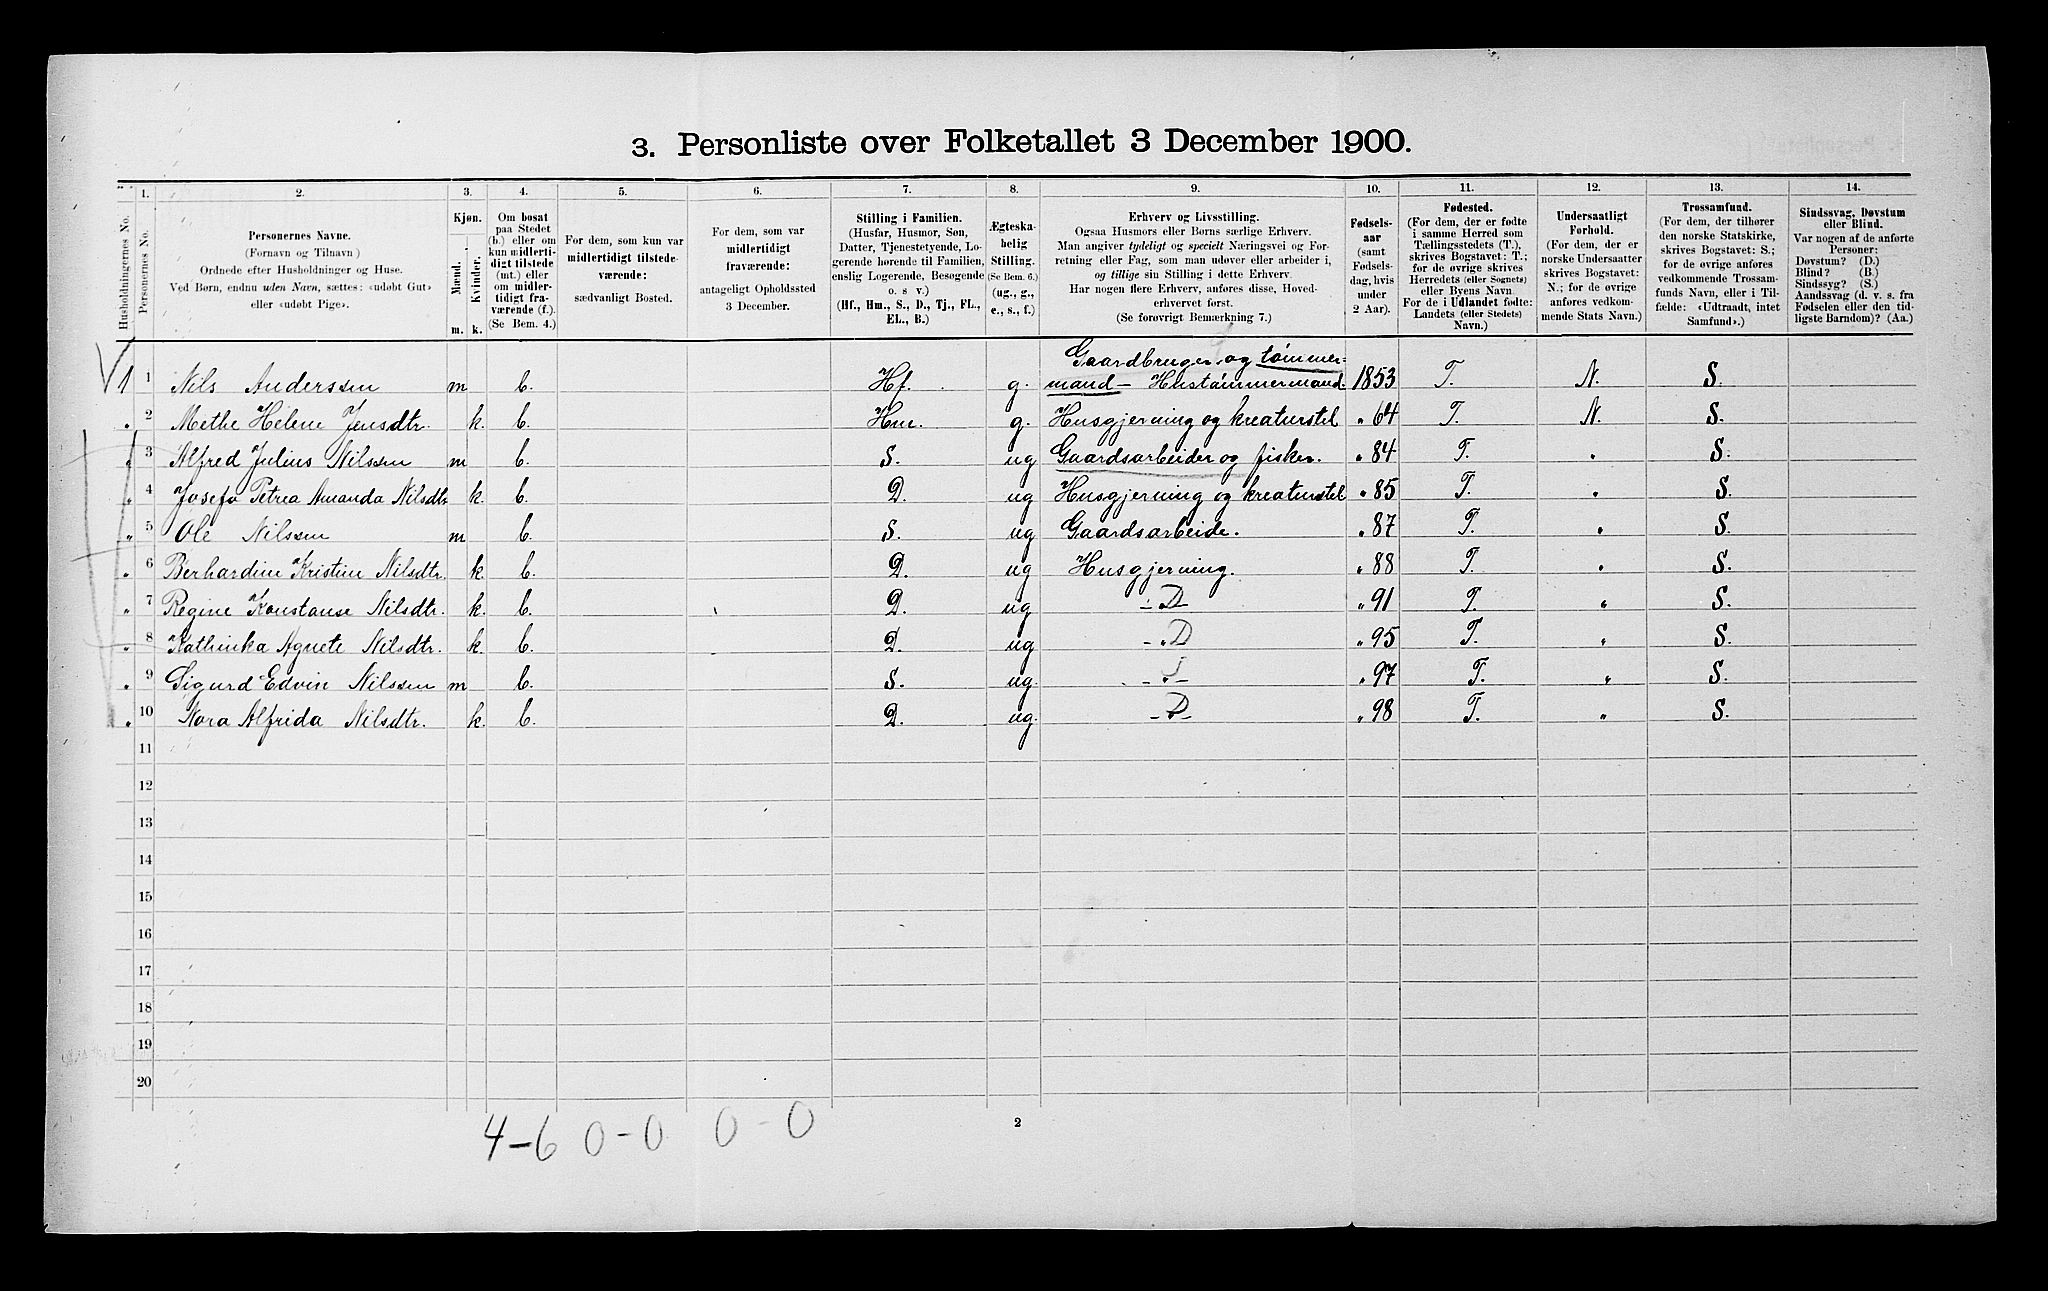 3. Personliste over Folketallet 3 December 1900.
1. 2. 3. 4. 5. 6. 7. 8. 9. 10. 11. 12. 13. 14.
Husholdningernes No.
Personernes No.
Personernes Navne.
(Fornavn og Tilnavn)
Ordnede efter Husholdninger og Huse.
Ved Børn, endnu uden Navn, sættes: «udøbt Gut»
eller «udøbt Pige».
Kjøn.
Mænd.
Kvinder.
m. k.
Om bosat
paa Stedet
(b.) eller om
kun midlerti-
digt tilstede
(mt.) eller
om midler-
tidigt fra-
værende (f.).
(Se Bem. 4.)
For dem, som kun var
midlertidigt tilstede-
værende:
sædvanligt Bosted.
For dem, som var
midlertidigt
fraværende:
antageligt Opholdssted
3 December.
Stilling i Familien.
(Husfar, Husmor, Søn,
Datter, Tjenestetyende, Lo-
gerende hørende til Familien,
enslig Logerende, Besøgende
o. s v.)
(Hf., Hm., S., D., Tj., FL.,
EL., B.)
Ægteska-
belig
Stilling.
(Se Bem. 6.)
(ug., g.,
e., s., f.)
Erhverv og Livsstilling.
Ogsaa Husmors eller Børns særlige Erhverv.
Man angiver tydeligt og specielt Næringsvei og For-
retning eller Fag, som man udøver eller arbeider i,
og tillige sin Stilling i dette Erhverv.
Har nogen flere Erhverv, anføres disse, Hoved-
erhvervet først.
(Se forøvrigt Bemærkning 7.)
Fødsels-
aar
(samt
Fødsels-
dag, hvis
under
2 Aar).
Fødested.
(For dem, der er fødte
i samme Herred som
Tællingsstedets (T.),
skrives Bogstavet: T.;
for de øvrige skrives
Herredets (eller Sognets)
eller Byens Navn.
For de i Udlandet fødte:
Landets (eller Stedets)
Navn.)
Undersaatligt
Forhold.
(For dem, der er
norske Undersaatter
skrives Bogstavet:
N.; for de øvrige
anføres vedkom-
mende Stats Navn.)
Trossamfund.
(For dem, der tilhører
den norske Statskirke,
skrives Bogstavet: S.;
for de øvrige anføres
vedkommende Trossam-
funds Navn, eller i Til-
fælde: «Udtraadt, intet
Samfund».)
Sindssvag, Døvstum
eller Blind.
Var nogen af de anførte
Personer:
Døvstum? (D.)
Blind? (B.)
Sindssyg? (S.)
Aandssvag (d. v. s. fra
Fødselen eller den tid-
ligste Barndom)? (Aa.)
Gaardbruger og tömmer=
1 1 Nils Anderssen m b. Hf. g. mand – Hustömmermand. 1853 T. N. S.
" 2 Methe Helene Jensdtr. k. b. Hm. g. Husgjerning og kreaturstel " 64 T. N. S.
" 3 Alfred Julius Nilssen m b. S. ug Gaardsarbeider og fisker. " 84 T. " S.
" 4 Josefa Petrea Amanda Nilsdtr k. b. D. ug Husgjerning og kreaturstel " 85 T. " S.
" 5 Ole Nilssen m b. S. ug Gaardsarbeide. " 87 T. " S.
" 6 Berhardine Kristine Nilsdtr. k. b. D. ug Husgjerning. " 88 T. " S.
" 7 Regine Konstanse Nilsdtr. k. b. D. ug – D – " 91 T. " S.
" 8 Kathinka Agnete Nilsdtr. k. b. D. ug – " D " 95 T. " S.
" 9 Sigurd Edvin Nilssen m b. S. ug. – " – " 97 T. " S.
" 10 Nora Alfrida Nilsdtr. k. b. D. ug. – D – " 98 T. " S.
11
12
13
14
15
16
17
18
19
20
4–6 0–0 0–0
2